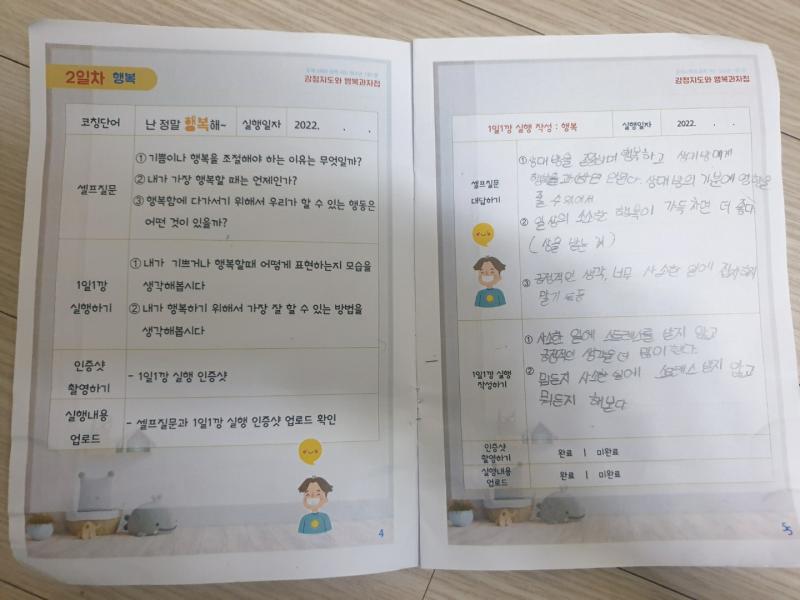 2일차 행복
감정지도와 행복과자점
코칭단어
난 정말 행복해~
실행일자
2022. . .
셀프질문
① 기쁨이나 행복을 조절해야 하는 이유는 무엇일까?
② 내가 가장 행복할 때는 언제인가?
③ 행복함에 다가서기 위해서 우리가 할 수 있는 행동은
어떤 것이 있을까?
1일1깡
실행하기
① 내가 기쁘거나 행복할때 어떻게 표현하는지 모습을
생각해봅시다
② 내가 행복하기 위해서 가장 잘 할 수 있는 방법을
생각해봅시다
인증샷
촬영하기
- 1일1깡 실행 인증샷
실행내용
업로드
- 셀프질문과 1일1깡 실행 인증샷 업로드 확인
4
감정지도와 행복과자점
1일1깡 실행 작성 : 행복
실행일자
2022. . .
셀프질문
대답하기
① 상대방을 행복하고 상대방에게
행복을 상대방의 기분에 영향을
줄 수 있어서
② 일상의 소소한 행복이 가득차면 더 좋다
( 상을 받는 거 )
③ 긍정적인 생각, 너무 사소한 일에 집착하지
말기 등등
1일1깡 실행
작성하기
① 사소한 일에 스트레스를 받지 않고
긍정적인 생각을 더 많이 한다.
② 뭐든지 사소한 일에 스트레스 받지 않고
뭐든지 해본다
인증샷
촬영하기
완료 | 미완료
실행내용
업로드
완료 | 미완료